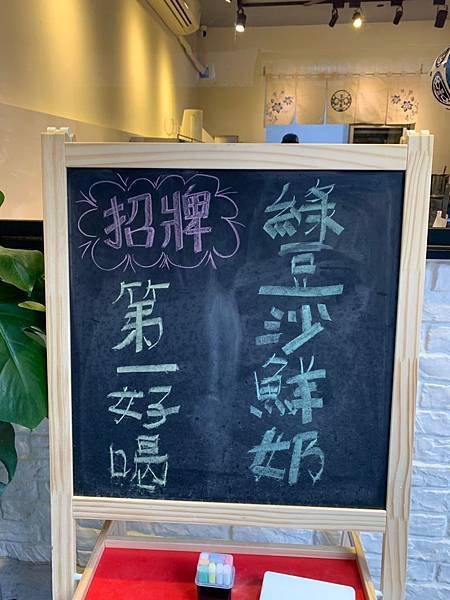 綠豆沙鮮奶
招牌
第一好喝